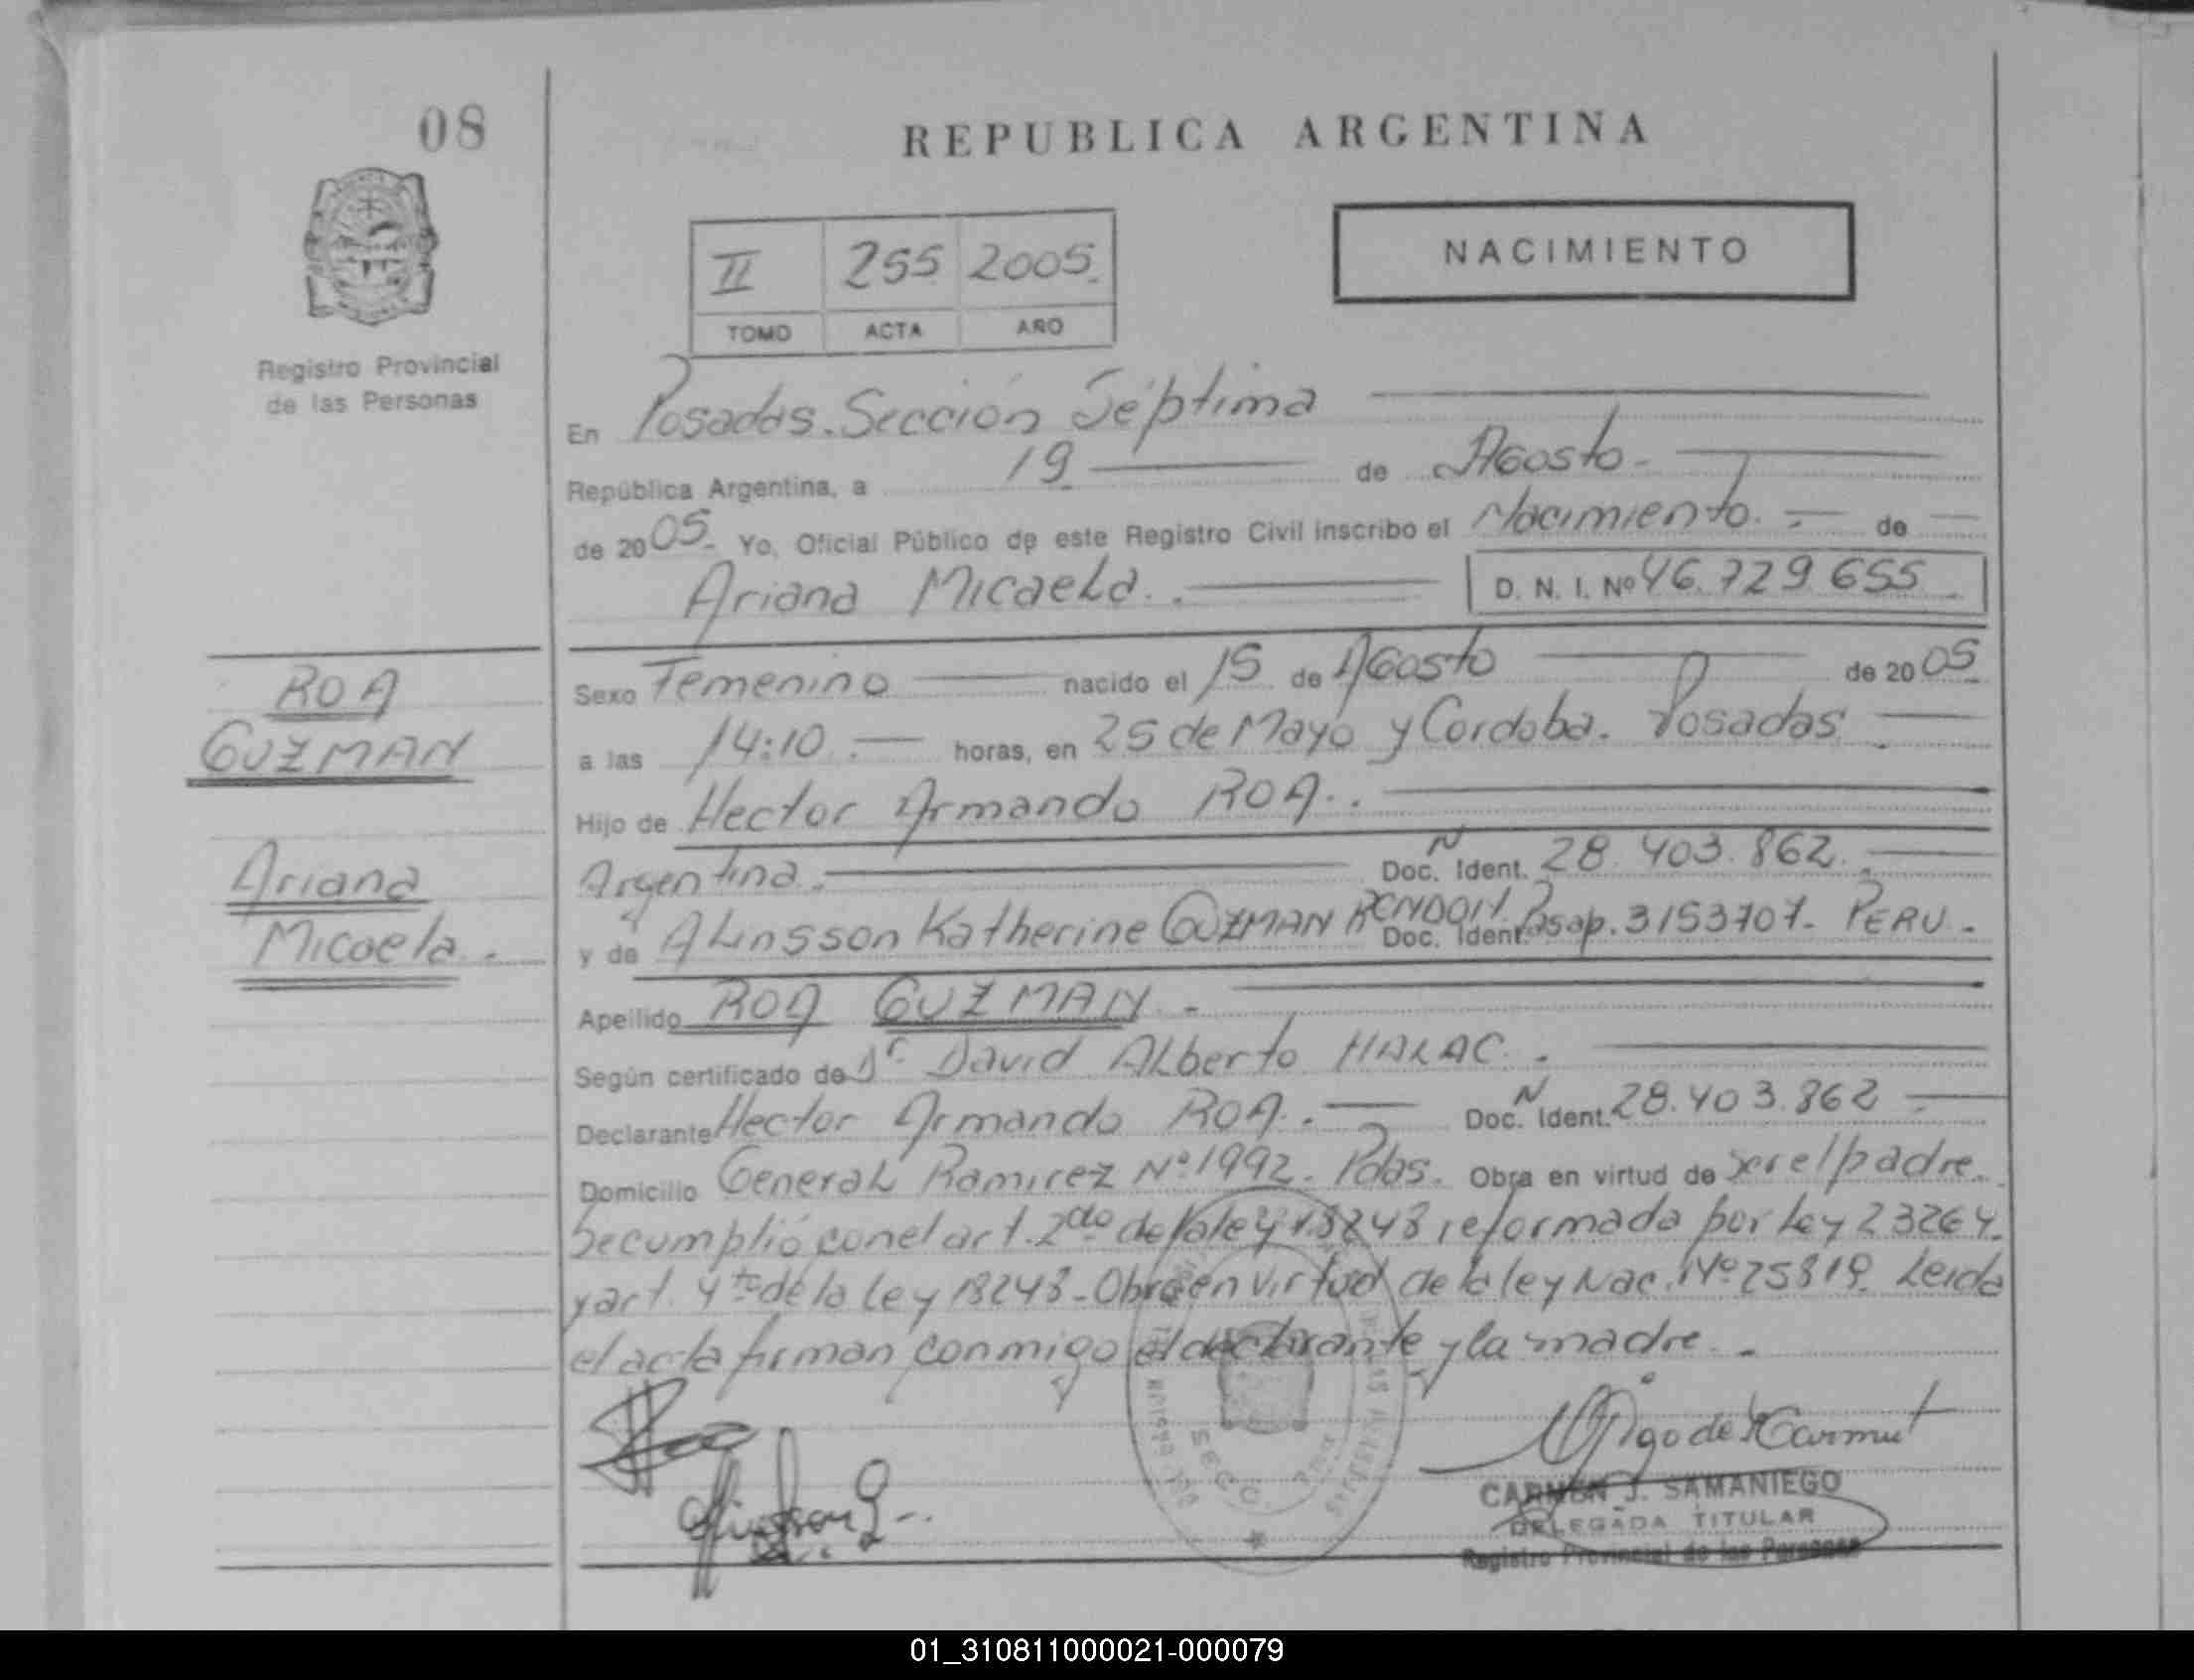 08
REPUBLICA ARGENTINA
NACIMIENTO
II 255 2005.
TOMO ACTA AÑO
Registro Provincial
de las Personas
En Posadas. Sección Séptima
República Argentina, a 19 de Agosto.
de 2005. Yo, Oficial Público de este Registro Civil inscribo el Nacimiento. de
Ariana Micaela. D. N. I. Nº 46.729.655
ROA
GUZMAN
Ariana
Micaela.
Sexo Femenino nacido el 15 de Agosto de 2005
a las 14:10. horas, en 25 de Mayo y Cordoba. Posadas
Hijo de Hector Armando ROA.
Argentina. Doc. N Ident. 28.403.862.
y de ALinsson Katherine GUZMAN RENDON Doc. Ident. Pasap. 3153707. PERU.
Apellido ROA GUZMAN.
Según certificado de Dr David ALberto HALAC.
Declarante Hector Armando ROA. Doc. N Ident. 28.403.862
Domicilio GeneraL Ramirez Nº 1992. Pdas. Obra en virtud de Ser el padre.
Se cumplió con el art. 2do de la ley 18248 reformada por Ley 23264.
y art. 4to de la Ley 18248. Obra en virtud de la ley Nac. Nº 25819. Leida
el acta firman conmigo el declarante y la madre.
CARMEN J. SAMANIEGO
DELEGADA TITULAR
Registro Provincial de las Personas
01_310811000021-000079